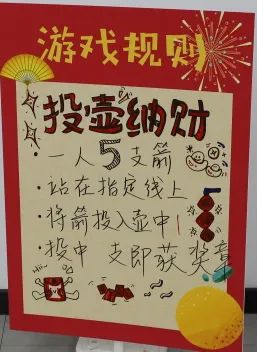 游戏规则
投壶纳财
· 一人5支箭
· 站在指定线上
· 将箭投入壶中
· 投中 支即获奖章